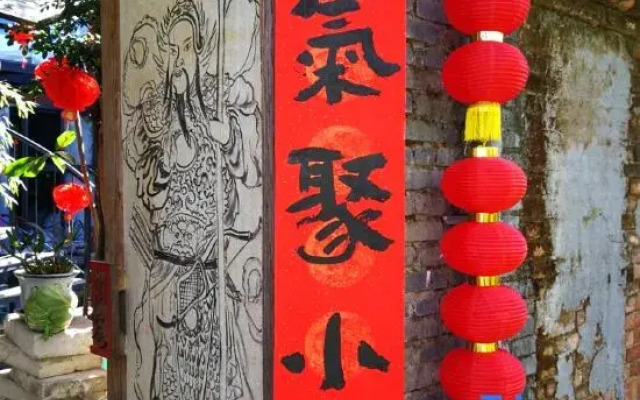 氣聚小